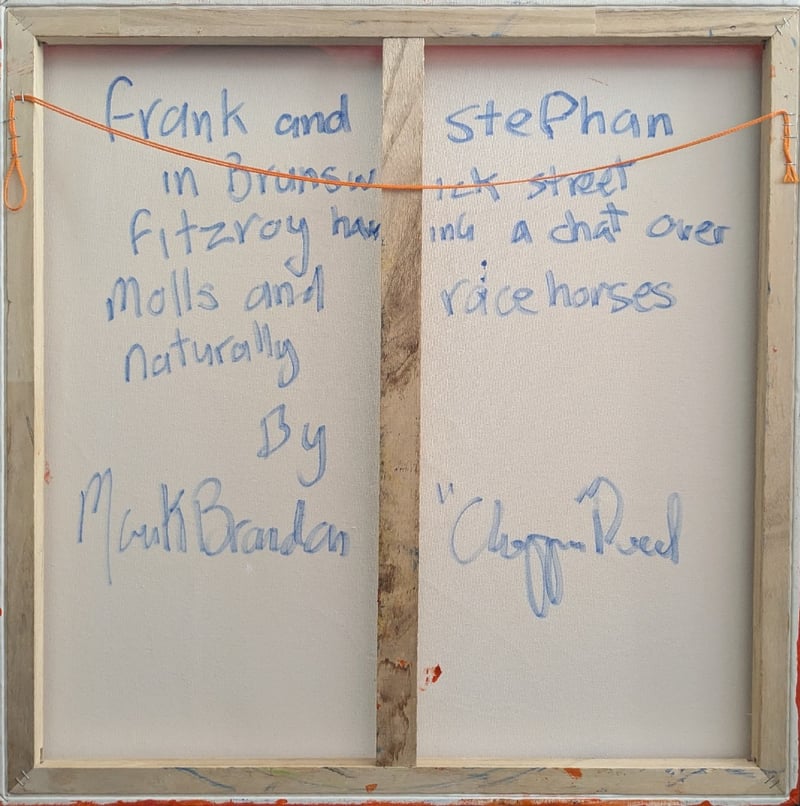 Frank and Stephan
in Brunswick street
Fitzroy having a chat over
Molls and racehorses
naturally
By
Mark Brandon "Chopper" Read